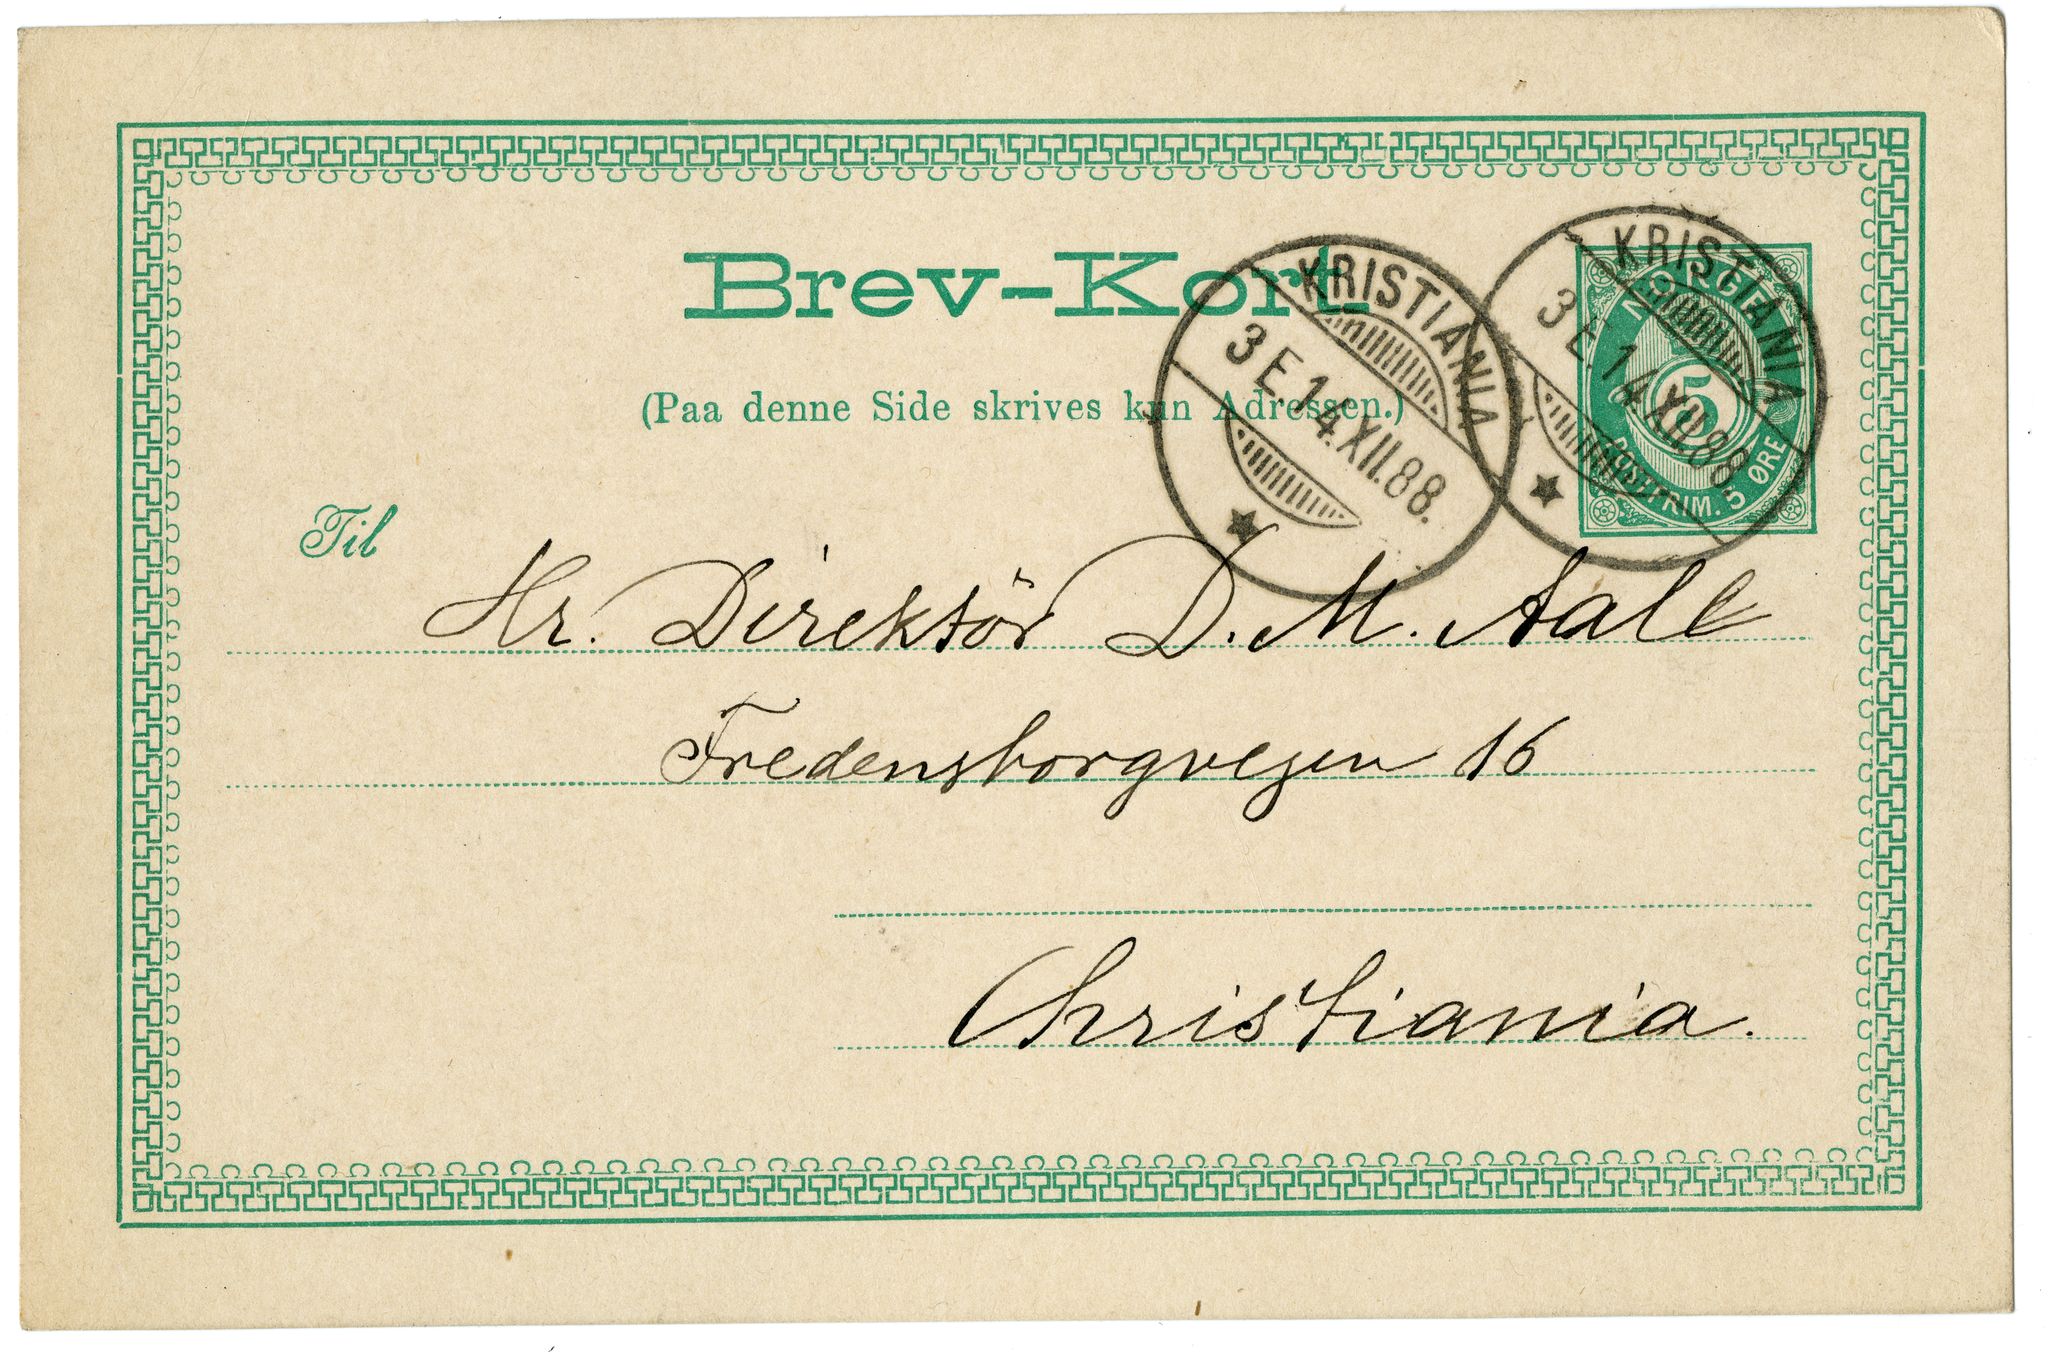 Brev-Kort
KRISTIANIA
3 E. 14.XII.88.
KRISTIANIA
3 E. 14.XII.88
NORGE
5
POSTFRIM. 5 ØRE
(Paa denne Side skrives kun Adressen.)
Til
Hr. Direktör D. M. Aall
Fredensborgvejen 16
Christiania.